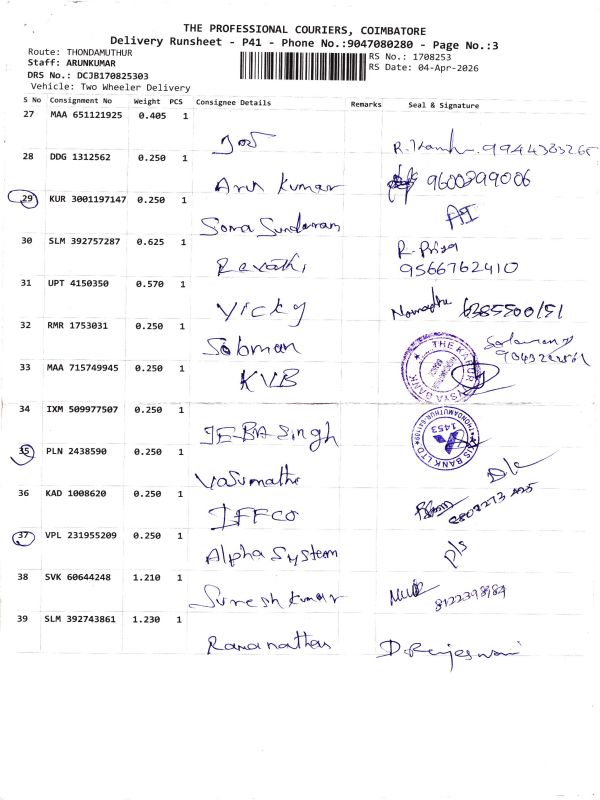 THE PROFESSIONAL COURIERS, COIMBATORE
Delivery Runsheet - P41 - Phone No.:9047080280 - Page No.:3
Route: THONDAMUTHUR
RS No.: 1708253
Staff: ARUNKUMAR
RS Date: 04-Apr-2026
DRS No.: DCJB170825303
Vehicle: Two Wheeler Delivery
S No Consignment No Weight PCS Consignee Details Remarks Seal & Signature
27 MAA 651121925 0.405 1
28 DDG 1312562 0.250 1
Arun Kumar 9600299006
29 KUR 3001197147 0.250 1
Soma Sundaram
30 SLM 392757287 0.625 1
Revathi R. Priya
9566762410
31 UPT 4150350 0.570 1
Vicky
32 RMR 1753031 0.250 1
Soloman
33 MAA 715749945 0.250 1
KVB THE KARUR VYSYA BANK
34 IXM 509977507 0.250 1
JEBA Singh
AXIS BANK LTD
1453
35 PLN 2438590 0.250 1
Vasumathi D/L
36 KAD 1008620 0.250 1
IFFCO
37 VPL 231955209 0.250 1
Alpha System P/s
38 SVK 60644248 1.210 1
Suresh Kumar
39 SLM 392743861 1.230 1
Ramanathan D. Rajeswari